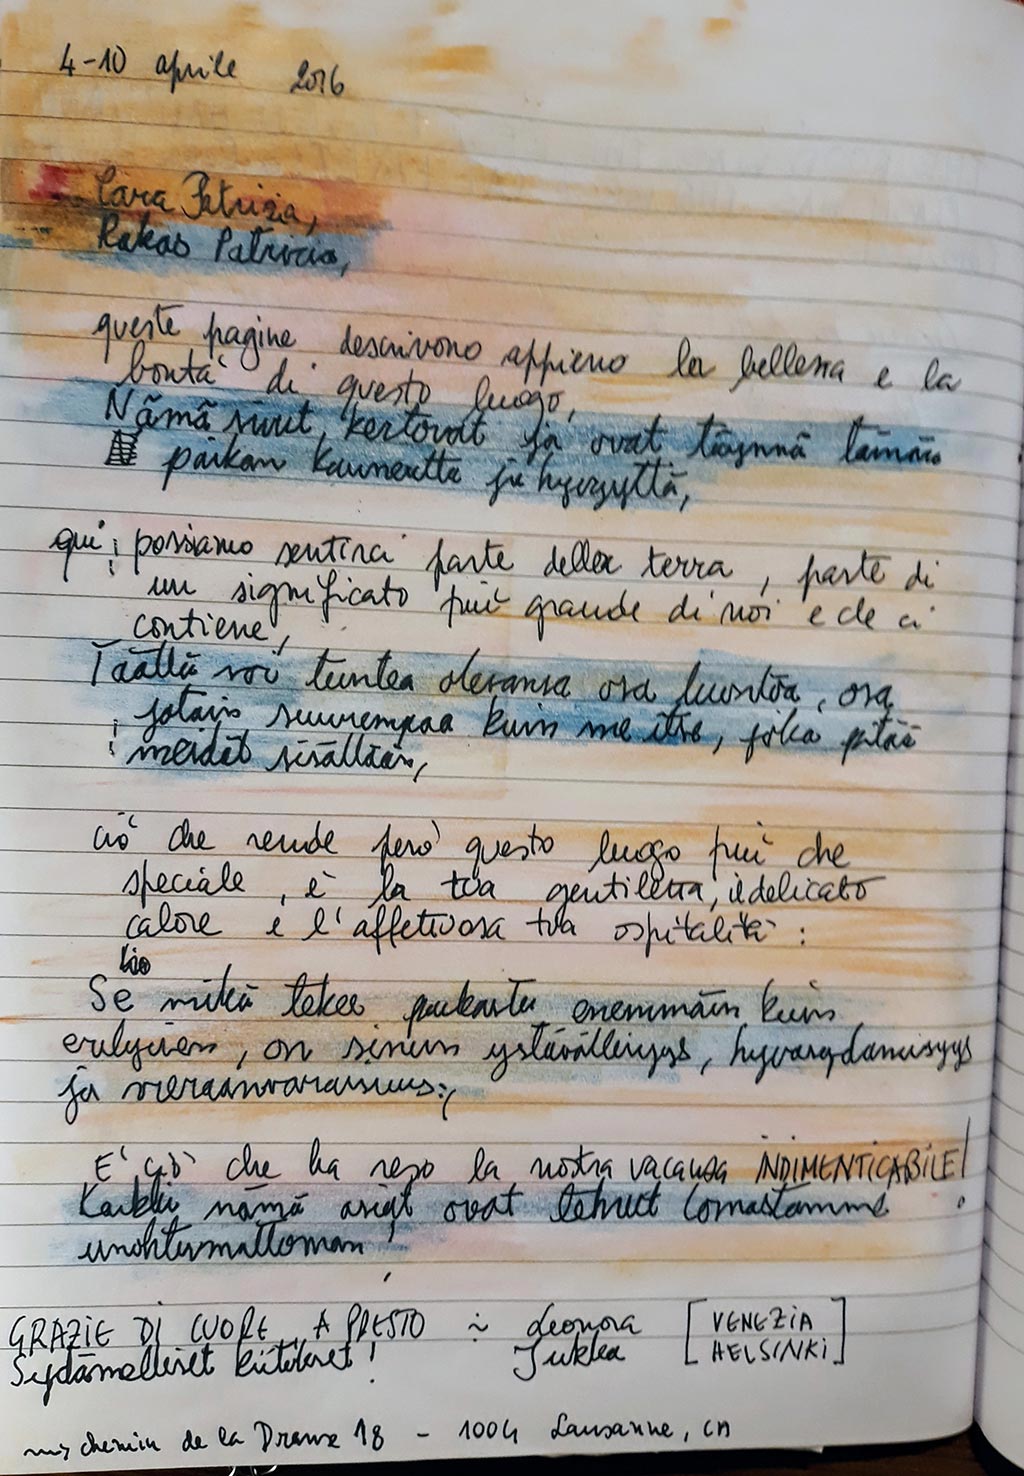 4-10 aprile 2016
Cara Patrizia,
Rakas Patricia,
queste pagine descrivono appieno la bellezza e la
bontà di questo luogo,
Nämä sivut, kertovat ja ovat täynnä tämän
paikan kauneutta ja hyvyyttä,
qui possiamo sentirci parte della terra, parte di
un significato più grande di noi e che ci
contiene,
Täällä voi tuntea olevansa osa luontoa, osa
jotain suurempaa kuin me itse, joka pitää
meidät sisällään,
ciò che rende però questo luogo più che
speciale, è la tua gentilezza, il delicato
calore e l'affettuosa tua ospitalità:
Se mikä tekee paikasta enemmän kuin
erityisen, on sinun ystävällisyys, hyväsydämisyys
ja vieraanvaraisuus:,
E' ciò che ha reso la nostra vacanza INDIMENTICABILE!
Kaikki nämä asiat ovat tehnet lomastamme
unohtumattoman!
GRAZIE DI CUORE, A PRESTO ~ Leonora [VENEZIA
Sydämelliset kiitokset! Jukka HELSINKI]
chemin de la Dranse 18 - 1004 Lausanne, CH